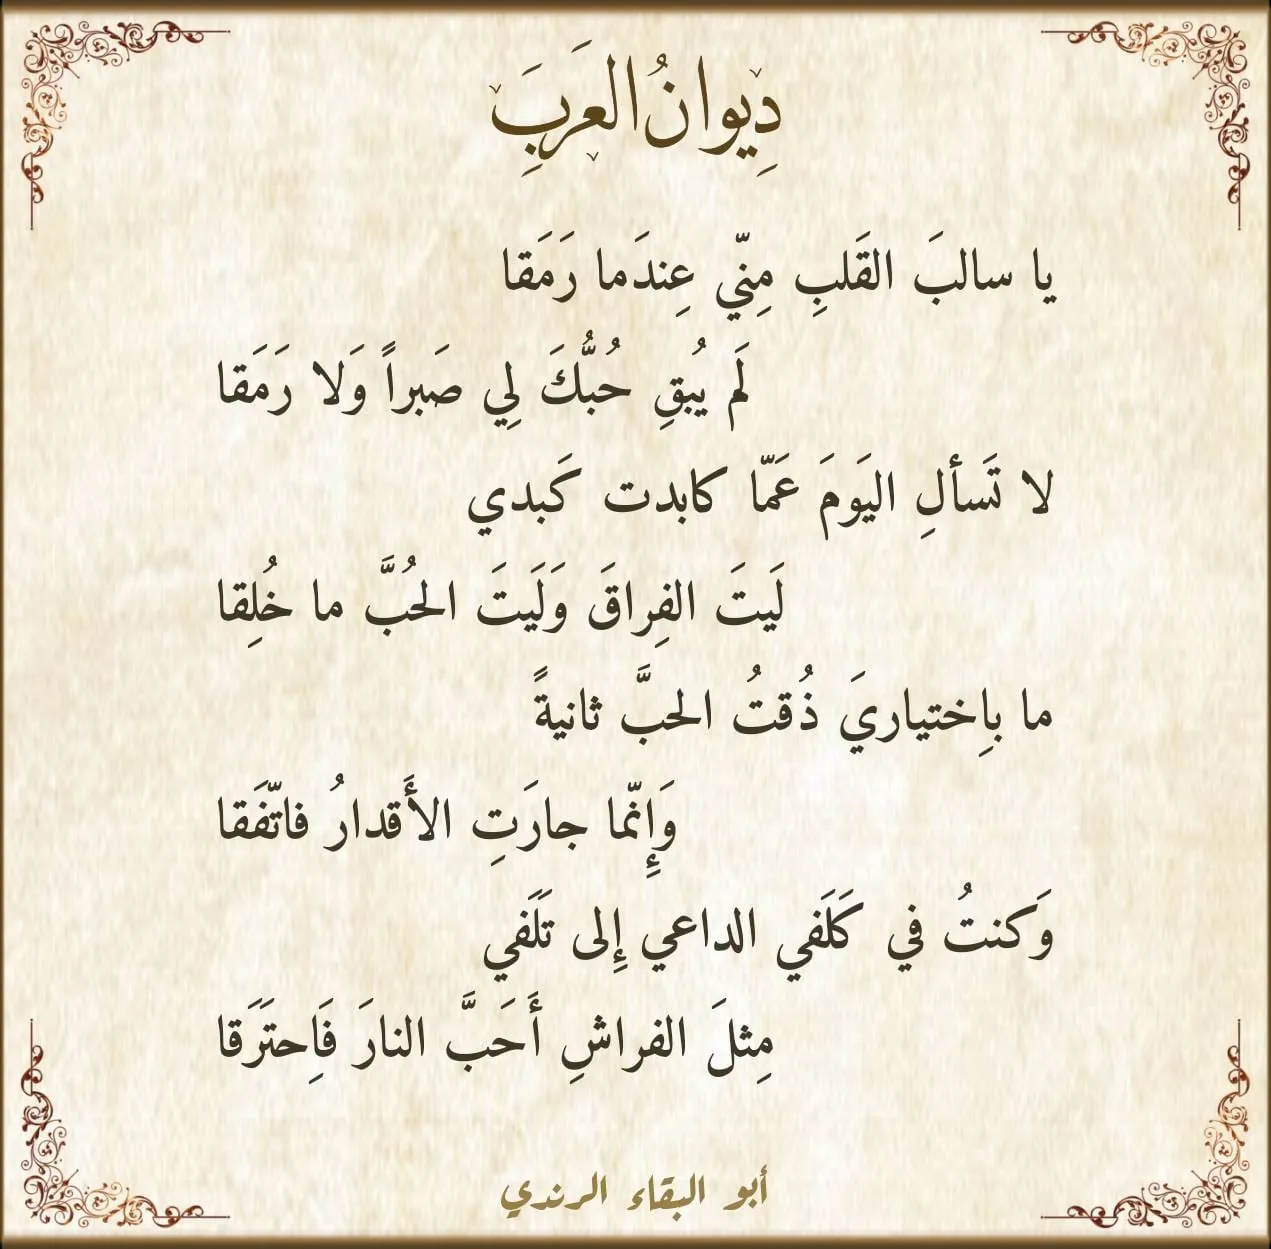 دِيوانُ العَرَبِ
يا سالبَ القَلبِ مِنّي عِندَما رَمَقا
لَم يُبقِ حُبُّكَ لِي صَبراً وَلا رَمَقا
لا تَسألِ اليَومَ عَمّا كابدت كَبدي
لَيتَ الفِراقَ وَلَيتَ الحُبَّ ما خُلِقا
ما بِاِختياريَ ذُقتُ الحبَّ ثانيةً
وَإِنّما جارَتِ الأَقدارُ فاتّفَقا
وَكنتُ في كَلَفي الداعي إِلى تَلَفي
مِثلَ الفراشِ أَحَبَّ النارَ فَاِحتَرَقا
أبو البقاء الرندي